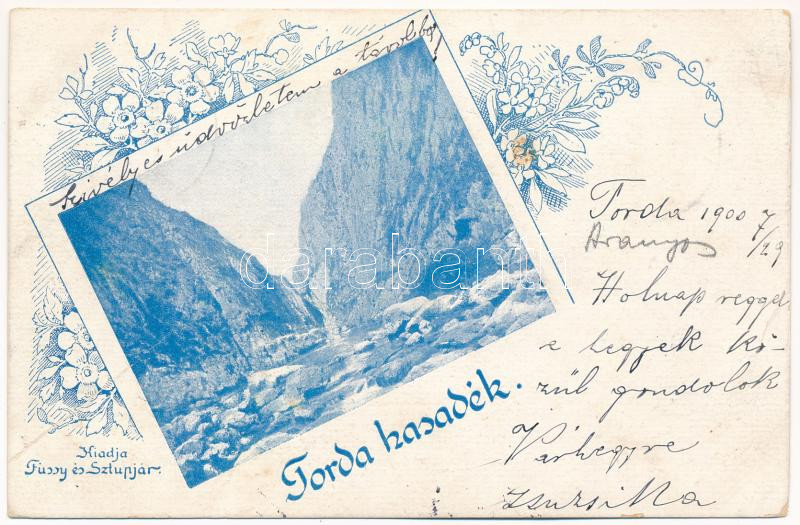 Szívélyes üdvözletem a távolból
Torda 1900 7/29
Aranyos
Holnap reggel
e hegyek kö-
zül gondolok
Várhegyre
Zsuzsika
Torda hasadék.
Kiadja
Füssy és Sztupjár.
darabanth